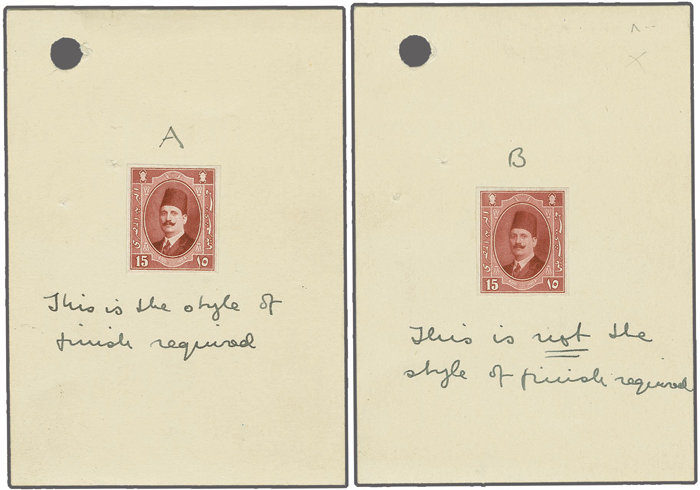 A
15 ١٥
This is the style of
finish required
B
15 ١٥
This is not the
style of finish required